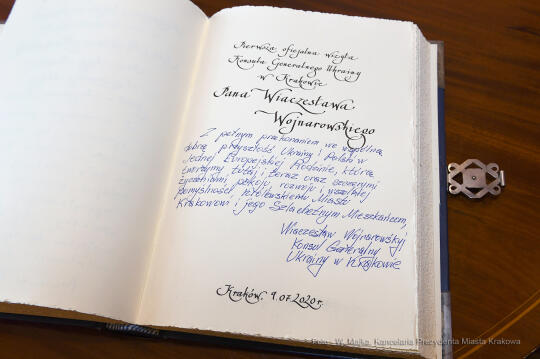 Pierwsza oficjalna wizyta
Konsula Generalnego Ukrainy
w Krakowie
Pana Wiaczesława
Wojnarowskiego
Z pełnym przekonaniem we wspólną
dobrą przyszłość Ukrainy i Polski w
Jednej Europejskiej Rodzinie, którą
tworzymy tutaj i teraz oraz szczerymi
życzeniami pokoju, rozwoju i wszelkiej
pomyślności Królewskiemu Miastu
Krakowowi i jego Szlachetnym Mieszkańcom,
Wiaczesław Wojnarowskyj
Konsul Generalny
Ukrainy w Krakowie
Kraków, 9.07.2020 r.
Foto.: W. Majka, Kancelaria Prezydenta Miasta Krakowa